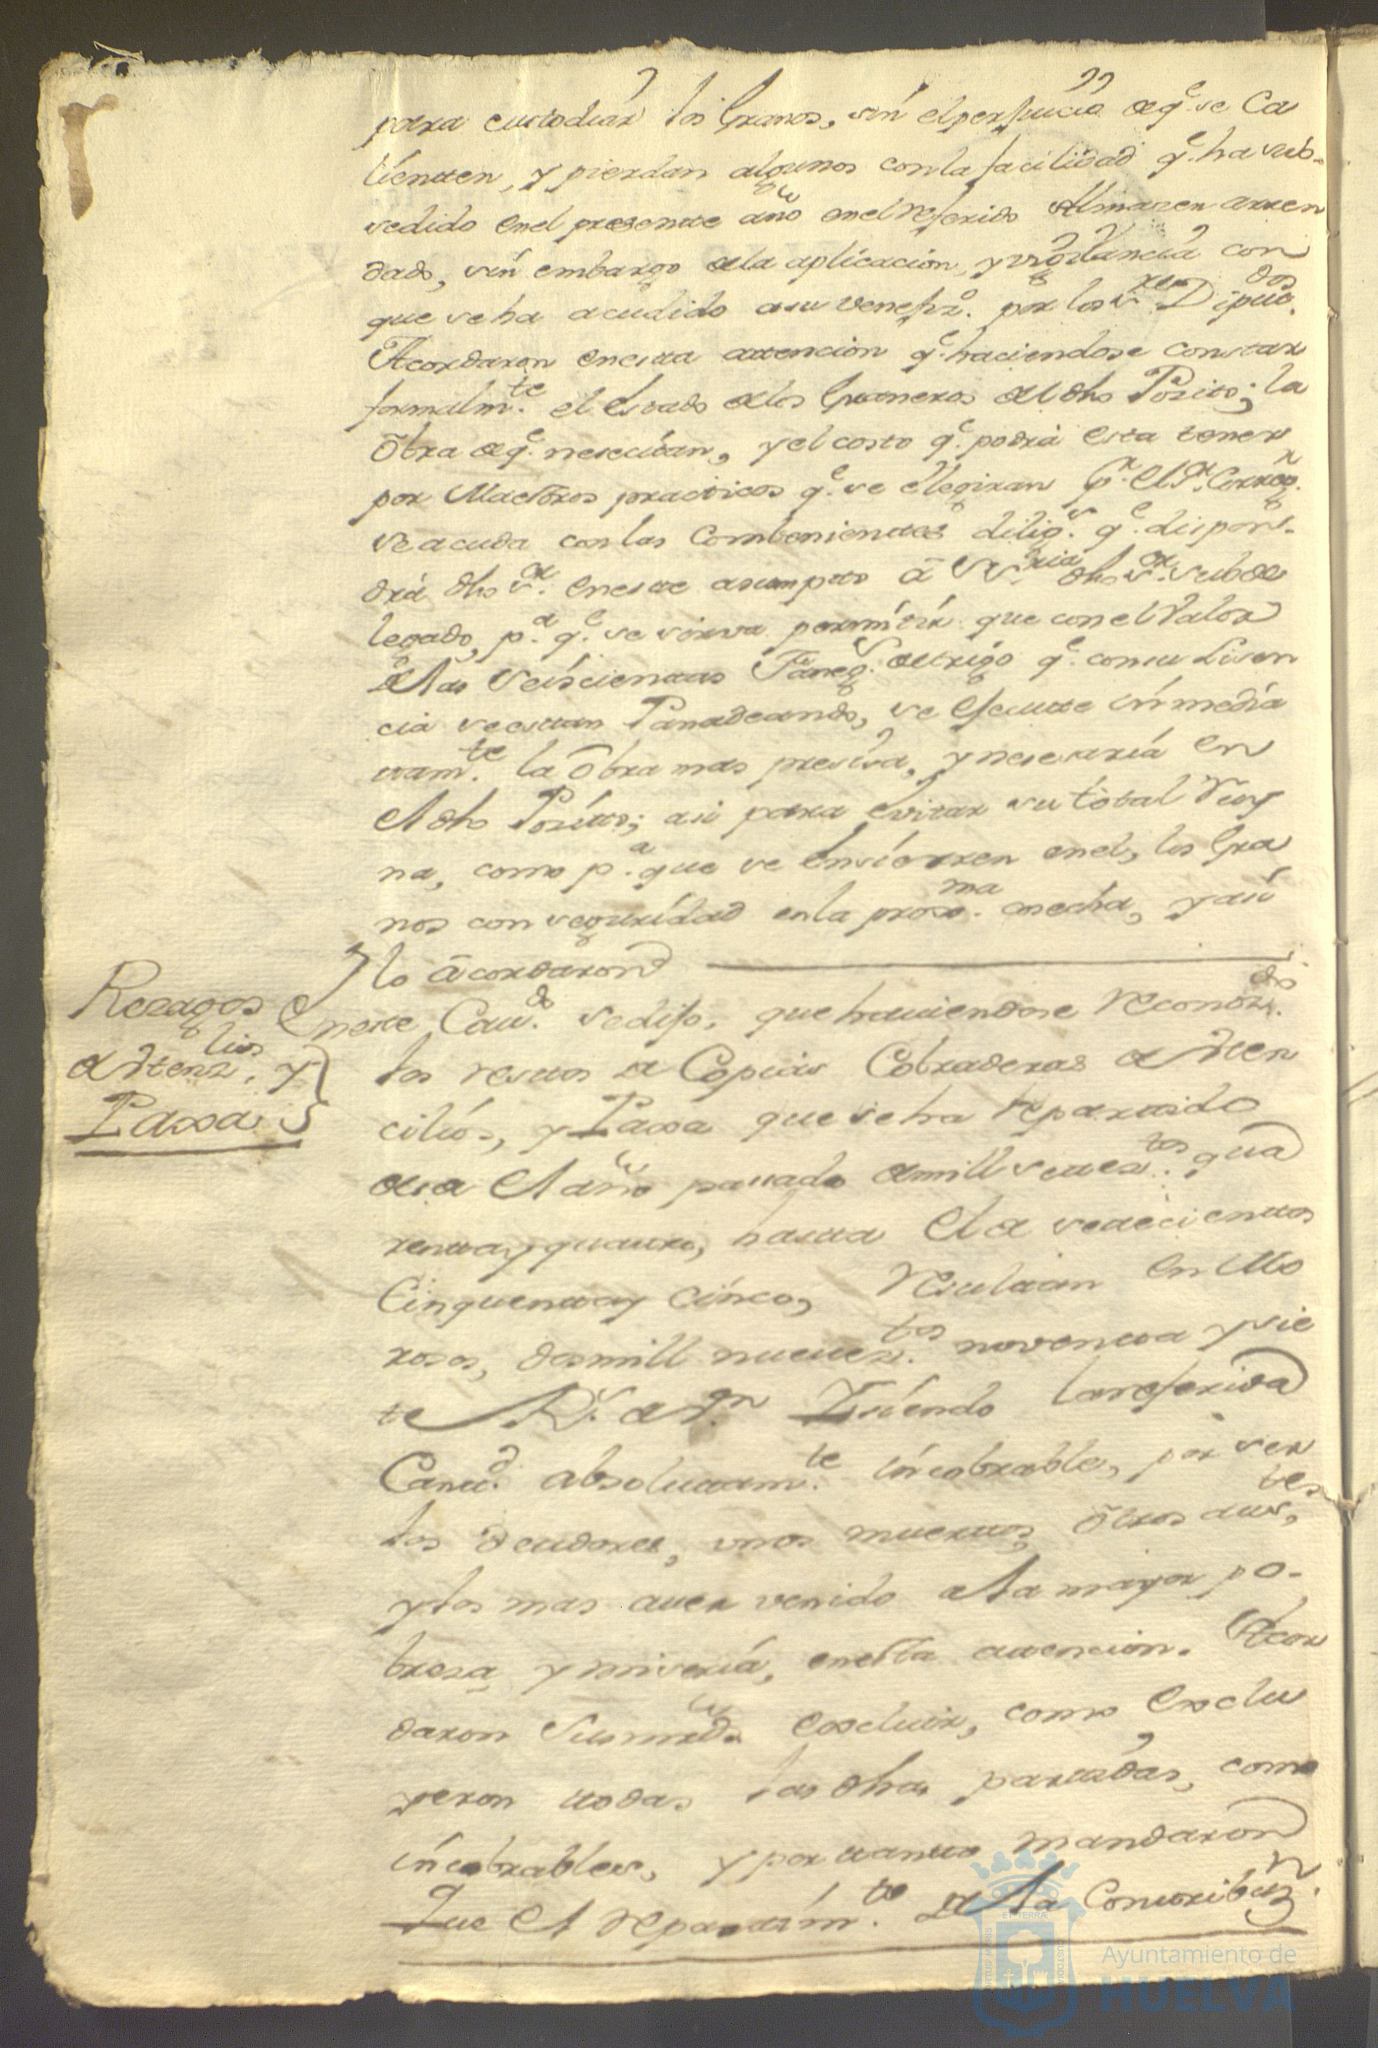 para custodiar los Granos, sin el perjuicio de q.e se Ca
lienten, y pierdan algunos con la facilidad q.e ha sub-
sedido en el presente año en el referido Almazen arren
dado, sin embargo de la aplicacion, y vigilancia con
que se ha acudido a su venefiz.o por los S.res Diput.dos
Acordaron en esta attencion q.e haciendose constar
formalm.te el estado de los Graneros del dho Posito; la
obra de q.e nesecitan, y el costo q.e podrá esta tener
por Maestros practicos q.e se elegiran p.r el S.r Correg.r
se acuda con las Combenientes dilig.s q.e dispon-
drá dho S.r en este asumpto á S S.ria dho S.r Subde
legado, p.a q.e se sirva permitir que con el Valor
de las Seiscientas Faneg.s de trigo q.e con su Lisen
cia se estan Panadeando, se efecute inmedia
tam.te la obra mas presisa, y nesesaria en
el dho Posito; asi para evitar su total Ruy
na, como p.a que se ensierren en el, los Gra
nos con seguridad en la prox.ma cosecha, y asi
lo acordaron
Rezagos
de Vtenz.lios, y
Paxa
En este Cav.do se dijo, que haviendose reconoz.do
los restos de Copias Cobraderas de Vten
cilios, y Paxa que se ha repartido
desde el año pasado de mill setez.tos qua
renta y quatro, hasta el de setecientos
Cinquenta y cinco, resultan en Mo
rosos, dos mill nuevez.tos noventa y sie
te R.s de v.n Y siendo la referida
Cant.d absolutam.te incobrable, por ser
los deudores, unos muertos, otros aus.tes,
y los mas aver venido a la mayor po-
breza y miseria, en esta atencion. Acor
daron Sus mrds. excluir, como exclu
yeron todas las dhas partidas, como
incobrables, y por tanto mandaron
Que el repartim.to de la Contribuz.n
Ayuntamiento de
HUELVA